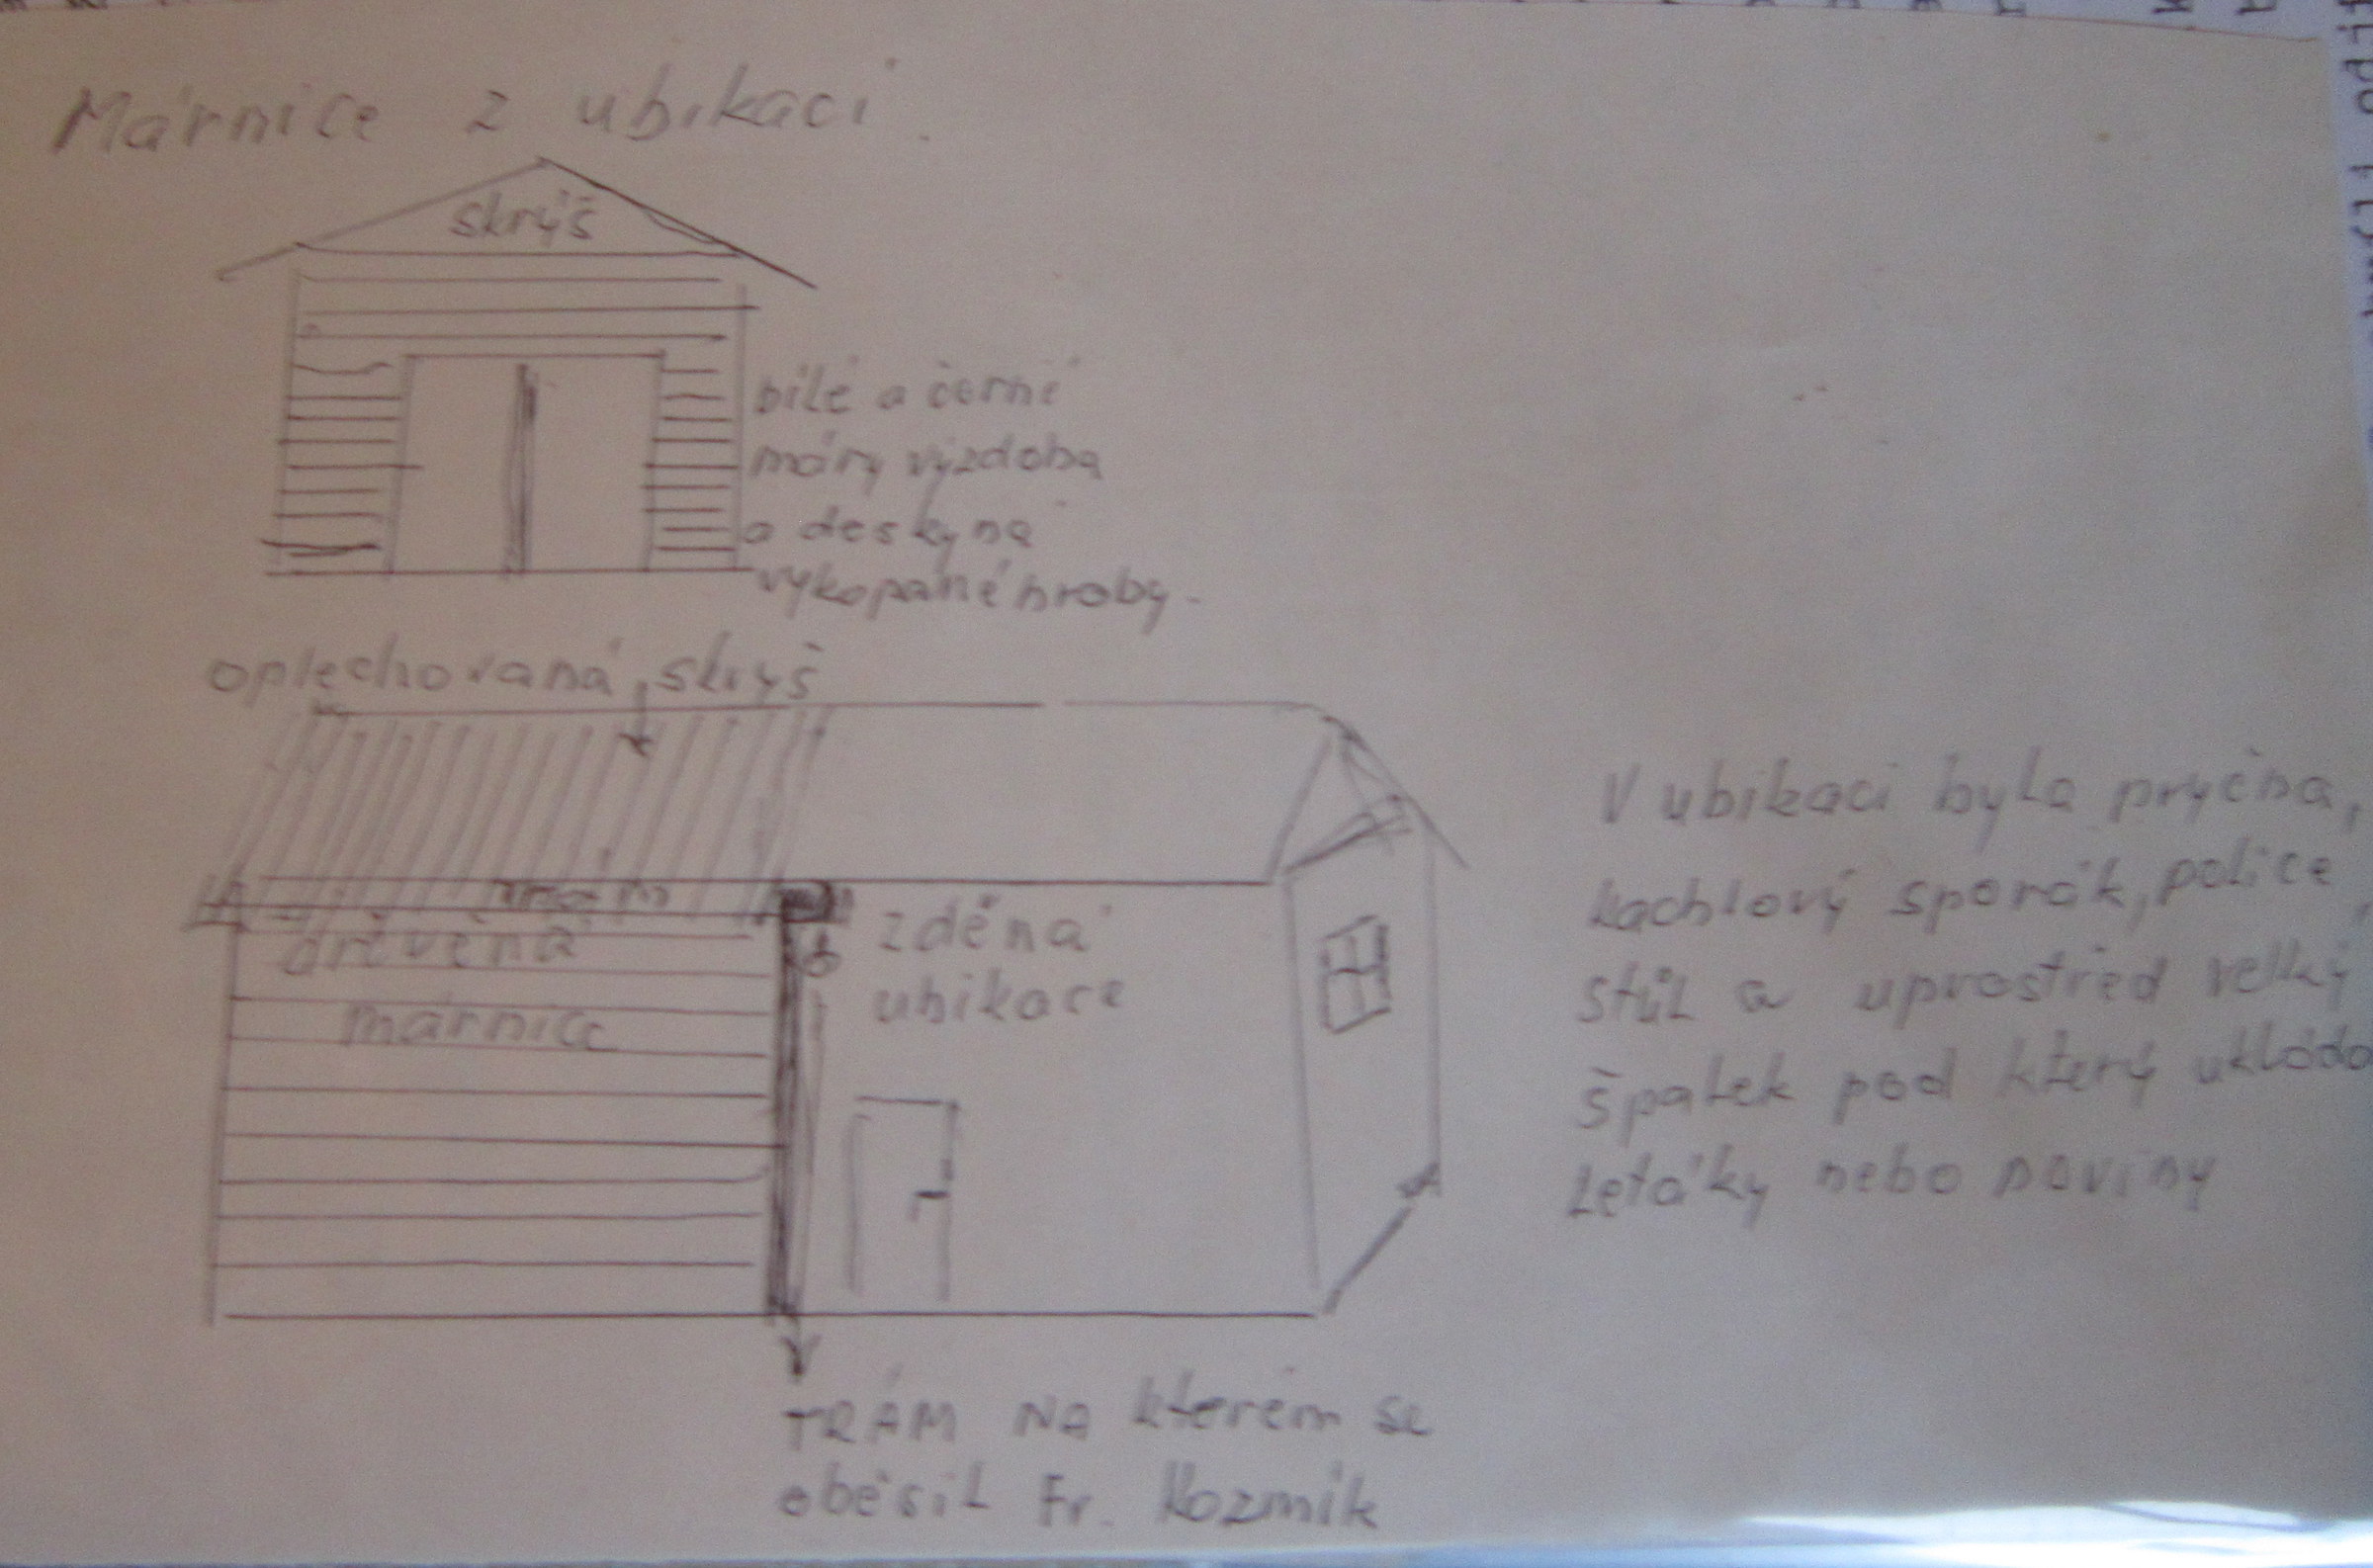 Márnice z ubikací.
skrýš
bílé a černé
máry výzdoba
a desky na
vykopané hroby.
oplechovaná skrýš
trám
dřevěná
márnice
zděná
ubikace
V ubikaci byla pryčna,
kachlový sporák, police,
stůl a uprostřed velký
špalek pod který ukládal
Letáky nebo noviny
TRÁM NA kterém se
oběsil Fr. Kozmík